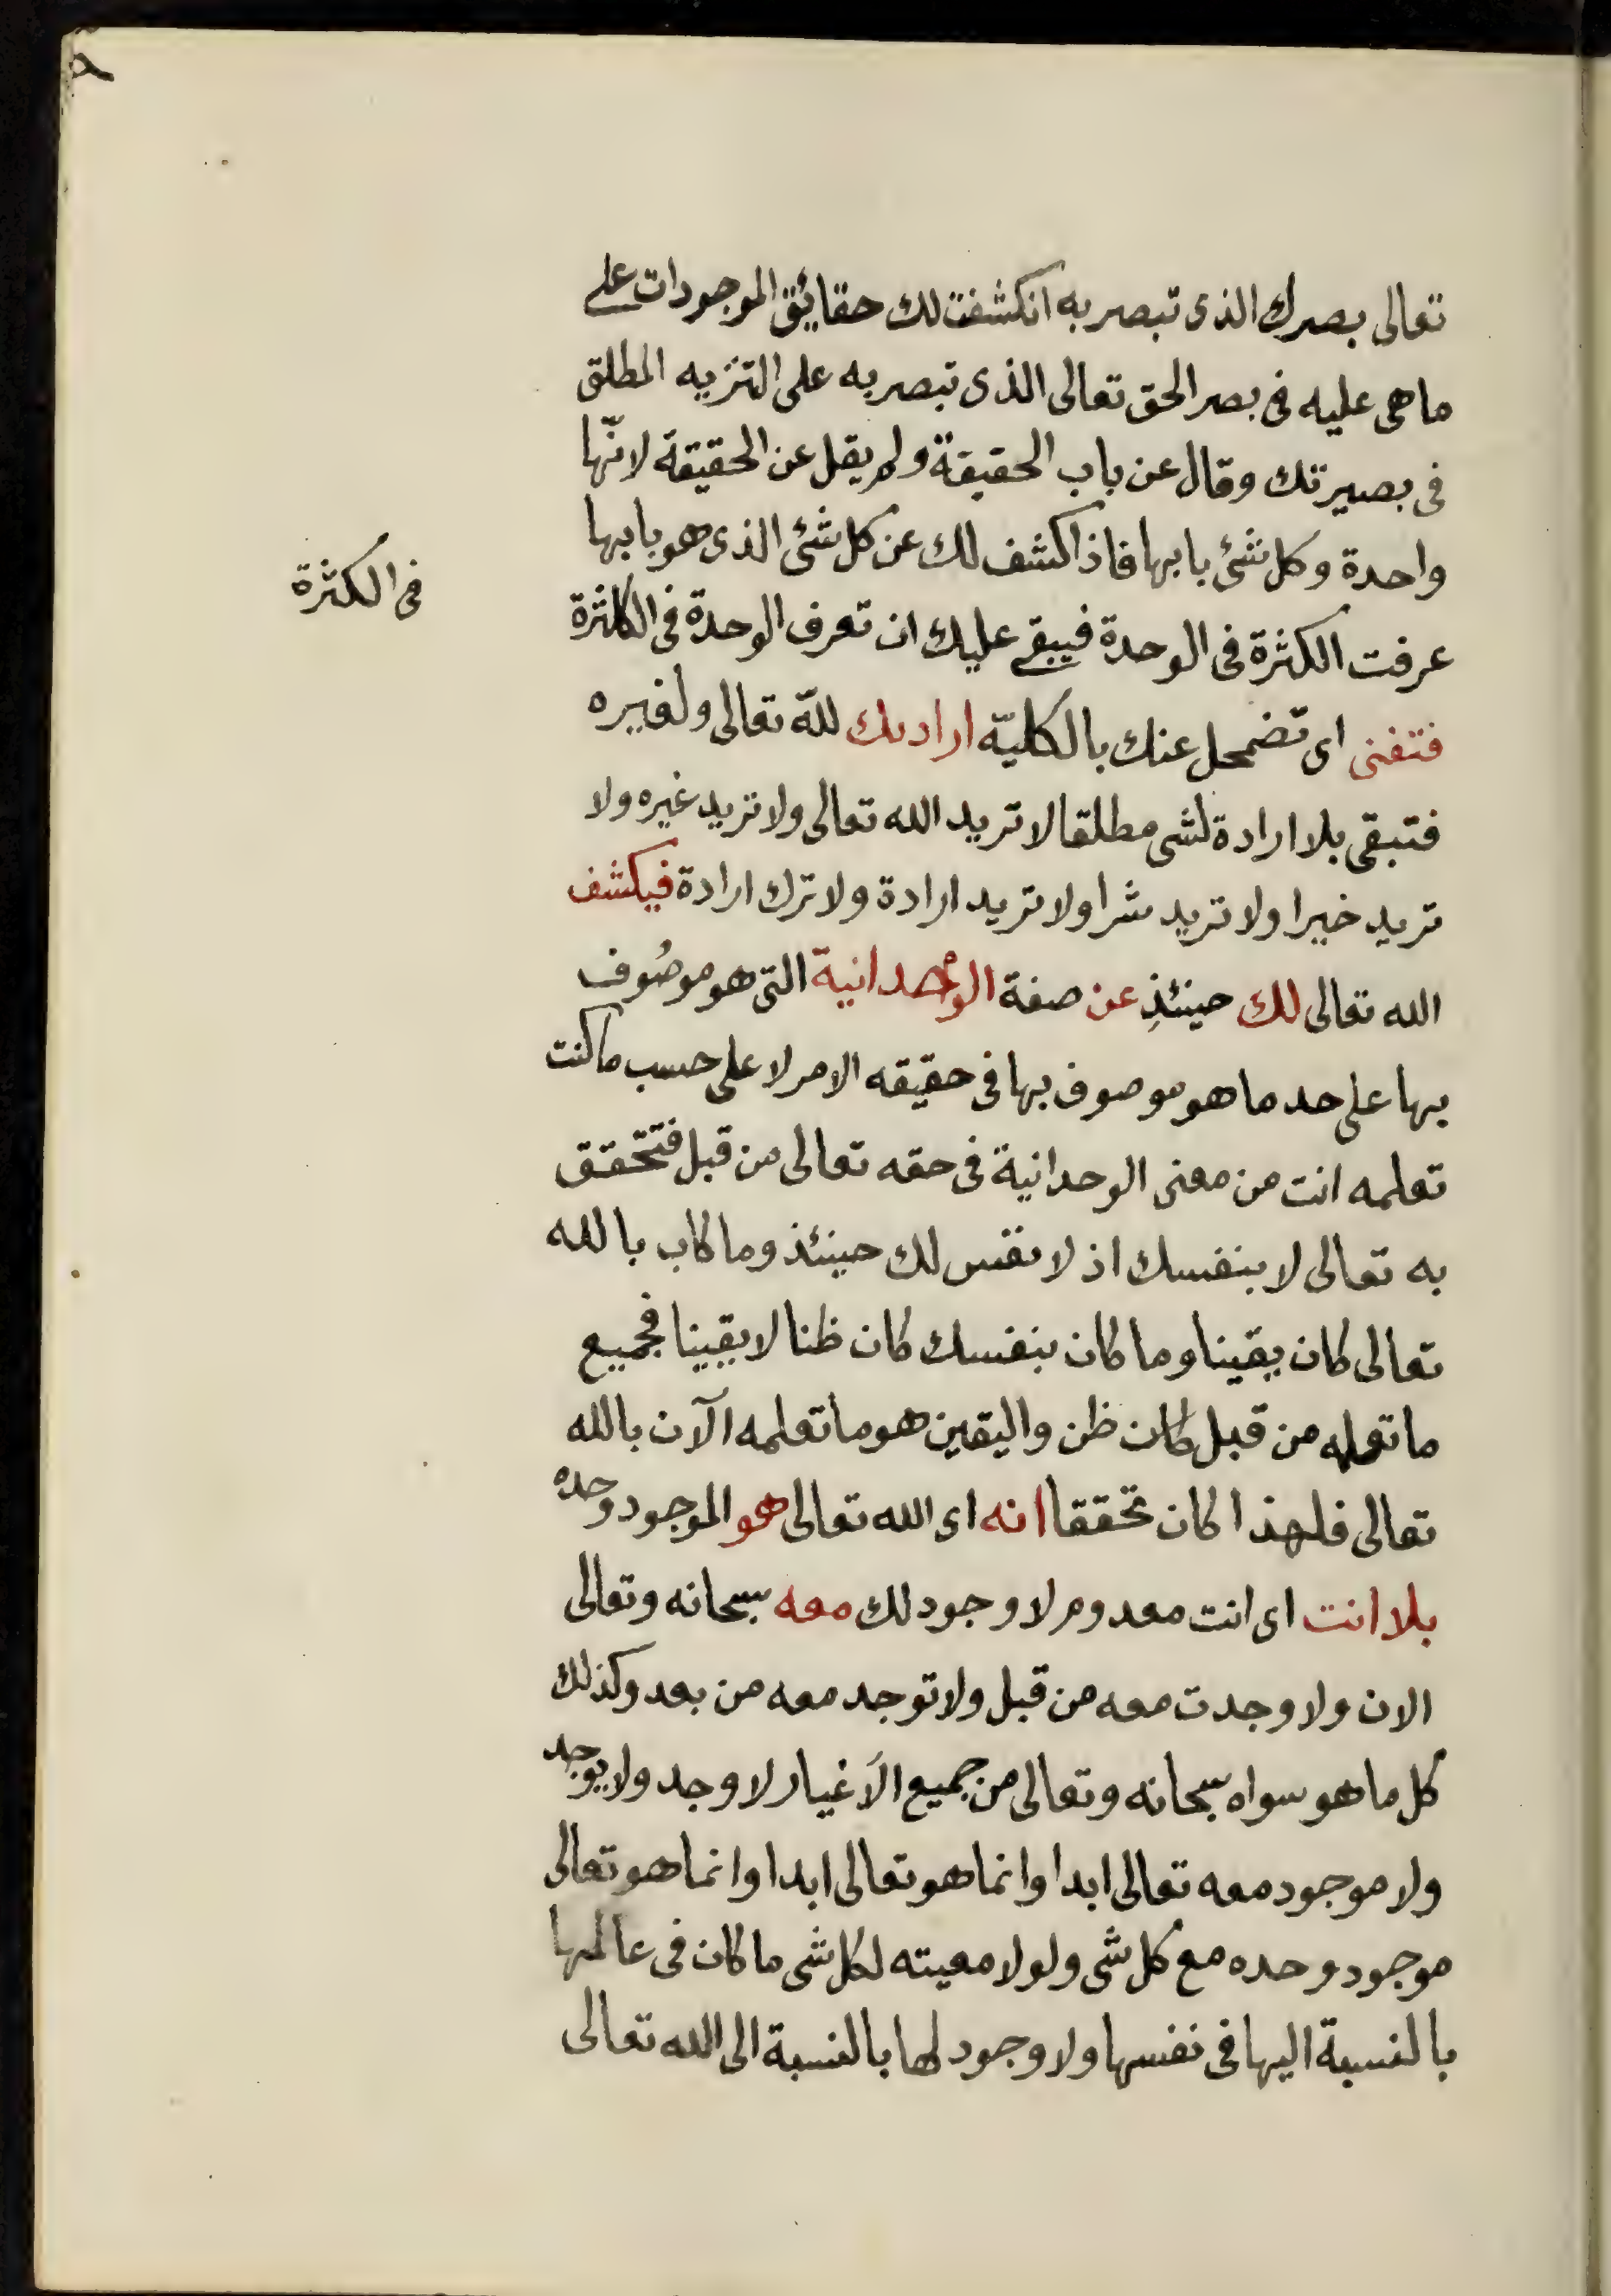 تعالى بصرك الذى تبصر به انكشفت لك حقائق الموجودات على
ما هى عليه فى بصر الحق تعالى الذى تبصر به على التنزيه المطلق
فى بصيرتك وقال عن باب الحقيقة ولم يقل عن الحقيقة لانّها
واحدة وكل شئ بابها فاذا كشف لك عن كل شئ الذى هو بابها
عرفت الكثرة فى الوحدة فيبقى عليك ان تعرف الوحدة فى الكثرة
فى الكثرة
فتفنى اى تضمحل عنك بالكليّة ارادتك للّه تعالى ولغيره
فتبقى بلا ارادة لشى مطلقا لا تريد الله تعالى ولا تريد غيره ولا
تريد خيرا ولا تريد شرا ولا تريد ارادة ولا ترك ارادة فيكشف
الله تعالى لك حينئذٍ عن صفة الوحدانية التى هو موصُوف
بها على حد ما هو موصوف بها فى حقيقه الامر لا على حسب ما كنت
تعلمه انت من معنى الوحدانية فى حقه تعالى من قبل فتتحقق
به تعالى لا بنفسك اذ لا نفس لك حينئذ وما كاب بالله
تعالى كان يقينا وما كان بنفسك كان ظنا لا يقينا فجميع
ما تعلمه من قبل كان ظن واليقين هو ما تعلمه الآن بالله
تعالى فلهذا كان تحققا انه اى الله تعالى هو الموجود وحده
بلا انت اى انت معدوم لا وجود لك معه سبحانه وتعالى
الان ولا وجدت معه من قبل ولا توجد معه من بعد وكذلك
كل ما هو سواه سبحانه وتعالى من جميع الاَغيار لا وجد ولا يوجد
ولا موجود معه تعالى ابدا وانما هو تعالى ابدا وانما هو تعالى
موجود وحده مع كل شى ولولا معيته لكل شى ما كان فى عالمها
بالنسبة اليها فى نفسها ولا وجود لها بالنسبة الى الله تعالى